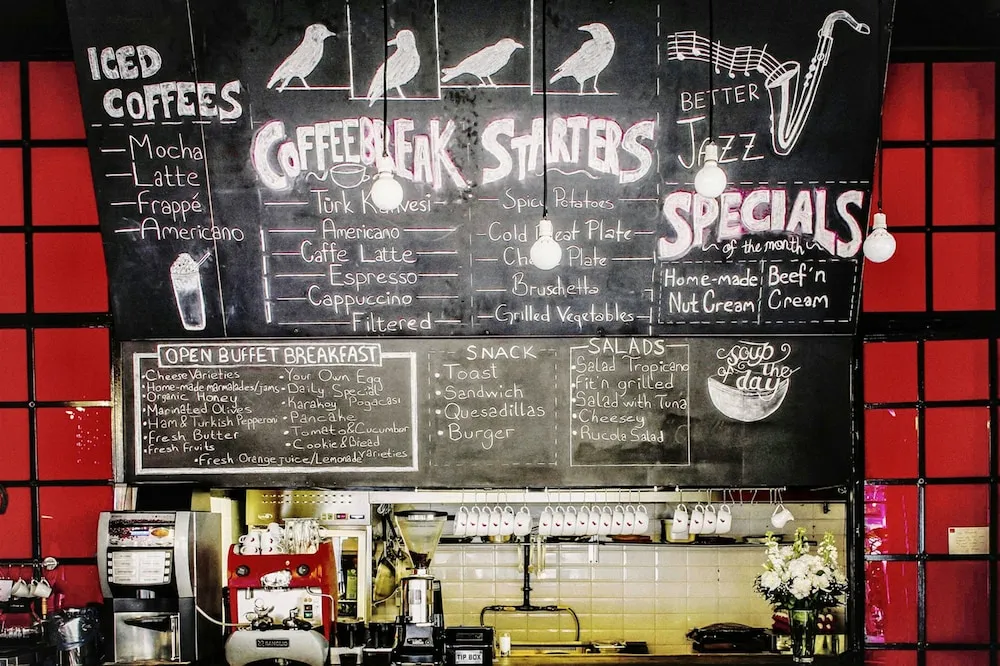 ICED
COFFEES
Mocha
Latte
Frappé
Americano
COFFEEBREAK
Türk
Americano
Caffe Latte
Espresso
Cappuccino
Filtered
STARTERS
Spicy Potatoes
Cold Meat Plate
Plate
Bruschetta
Grilled Vegetables
BETTER
JAZZ
SPECIALS
of the month
Home-made
Nut Cream
Beef'n
Cream
OPEN BUFFET BREAKFAST
Cheese Varieties
Home-made marmalades/jams
Organic Honey
Marinated Olives
Ham & Turkish Pepperoni
Fresh Butter
Fresh Fruits
Your Own Egg
Daily Special
Karakoy Pogacasi
Pancake
Tomato&Cucumber
Cookie&Bread
Fresh Orange juice/Lemonade varieties
SNACK
Toast
Sandwich
Quesadillas
Burger
SALADS
Salad Tropicano
Fit'n grilled
Salad with Tuna
Cheesey
Rucola Salad
Soup
OF THE
day
TIP BOX